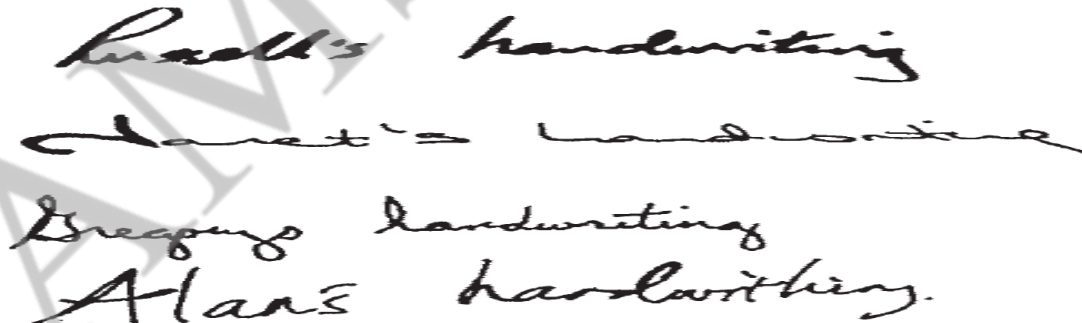 Russell's handwriting
Janet's handwriting
Gregorys handwriting
Alan's handwrithing.